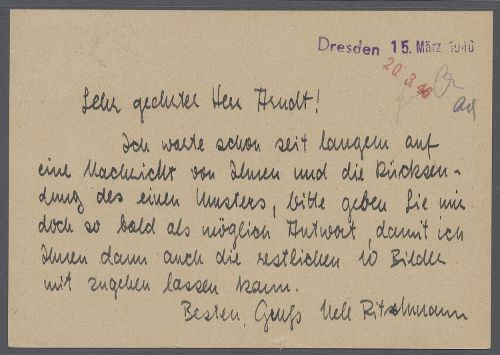 Dresden 15. März 1946
20.3.46
Sehr geehrter Herr Arndt!
Ich warte schon seit langem auf
eine Nachricht von Ihnen und die Rücksen-
dung des einen Musters, bitte geben Sie mir
doch so bald als möglich Antwort, damit ich
Ihnen dann auch die restlichen 10 Bilder
mit zugehen lassen kann.
Besten Gruß